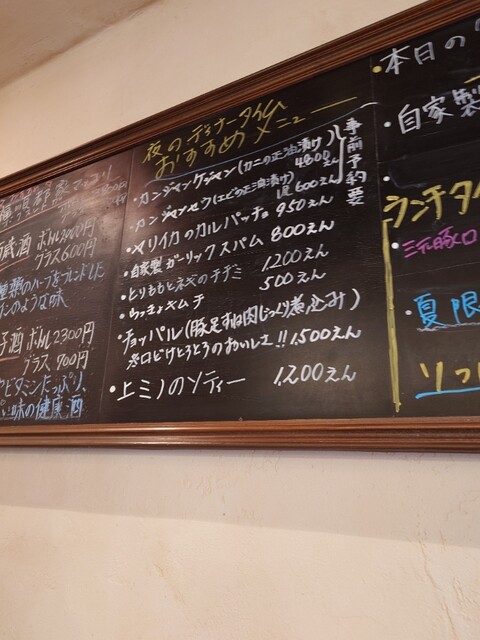 ボトル2,000円
グラス600円
ボトル2,300円
グラス700円
ビタミンたっぷり、
味の健康酒
夜のディナータイム
おすすめメニュー
・カンジャンケジャン(カニの正油漬け) 4800えん
・カンジャンセウ(エビの正油漬け) 1尾600えん
事前予約要
・ヤリイカのカルパッチョ 950えん
・自家製ガーリックスパム 800えん
・とりももとネギのチヂミ 1,200えん
・らっきょキムチ 500えん
・チョッパル(豚足すね肉じっくり煮込み)
※口どけとろとろのおいしエ!! 1,500えん
・上ミノのソティー 1,200えん
・本日の
・自家製
ランチタイ
・三元豚ロ
・夏限
ソフ